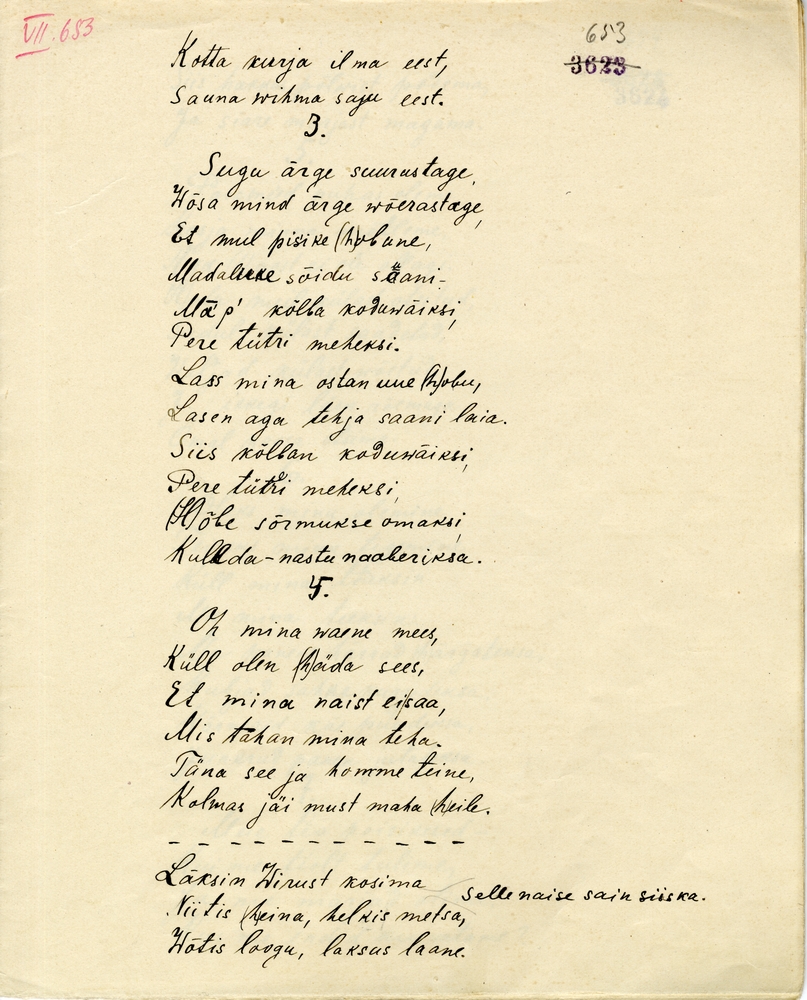 VII. 653
653
3623
Kotta kurja ilma eest,
Sauna wihma saju eest.
3.
Sugu ärge suurustage,
Wõsa mind ärge wõerastage,
Et mul pisike (h)obune,
Madaluke sõidu saani -
Ma p' kõlba koduwäiksi,
Pere tütri meheksi.
Lass mina ostan uue (h)obu,
Lasen aga tehja saani laia.
Siis kõlban koduwäiksi,
Pere tütri meheksi,
(H)õbe sõrmukse omaksi,
Kullda-nastu naaberiksa.
4.
Oh mina waene mees,
Küll olen (h)äda sees,
Et mina naist ei saa,
Mis tahan mina teha.
Täna see ja homme teine,
Kolmas jäi must maha (h)eile.
- - - - - - - - - - -
Läksin Wirust kosima
Selle naise sain siiska.
Niitis (h)eina, helkis metsa,
Wõtis loogu, laksus laane.